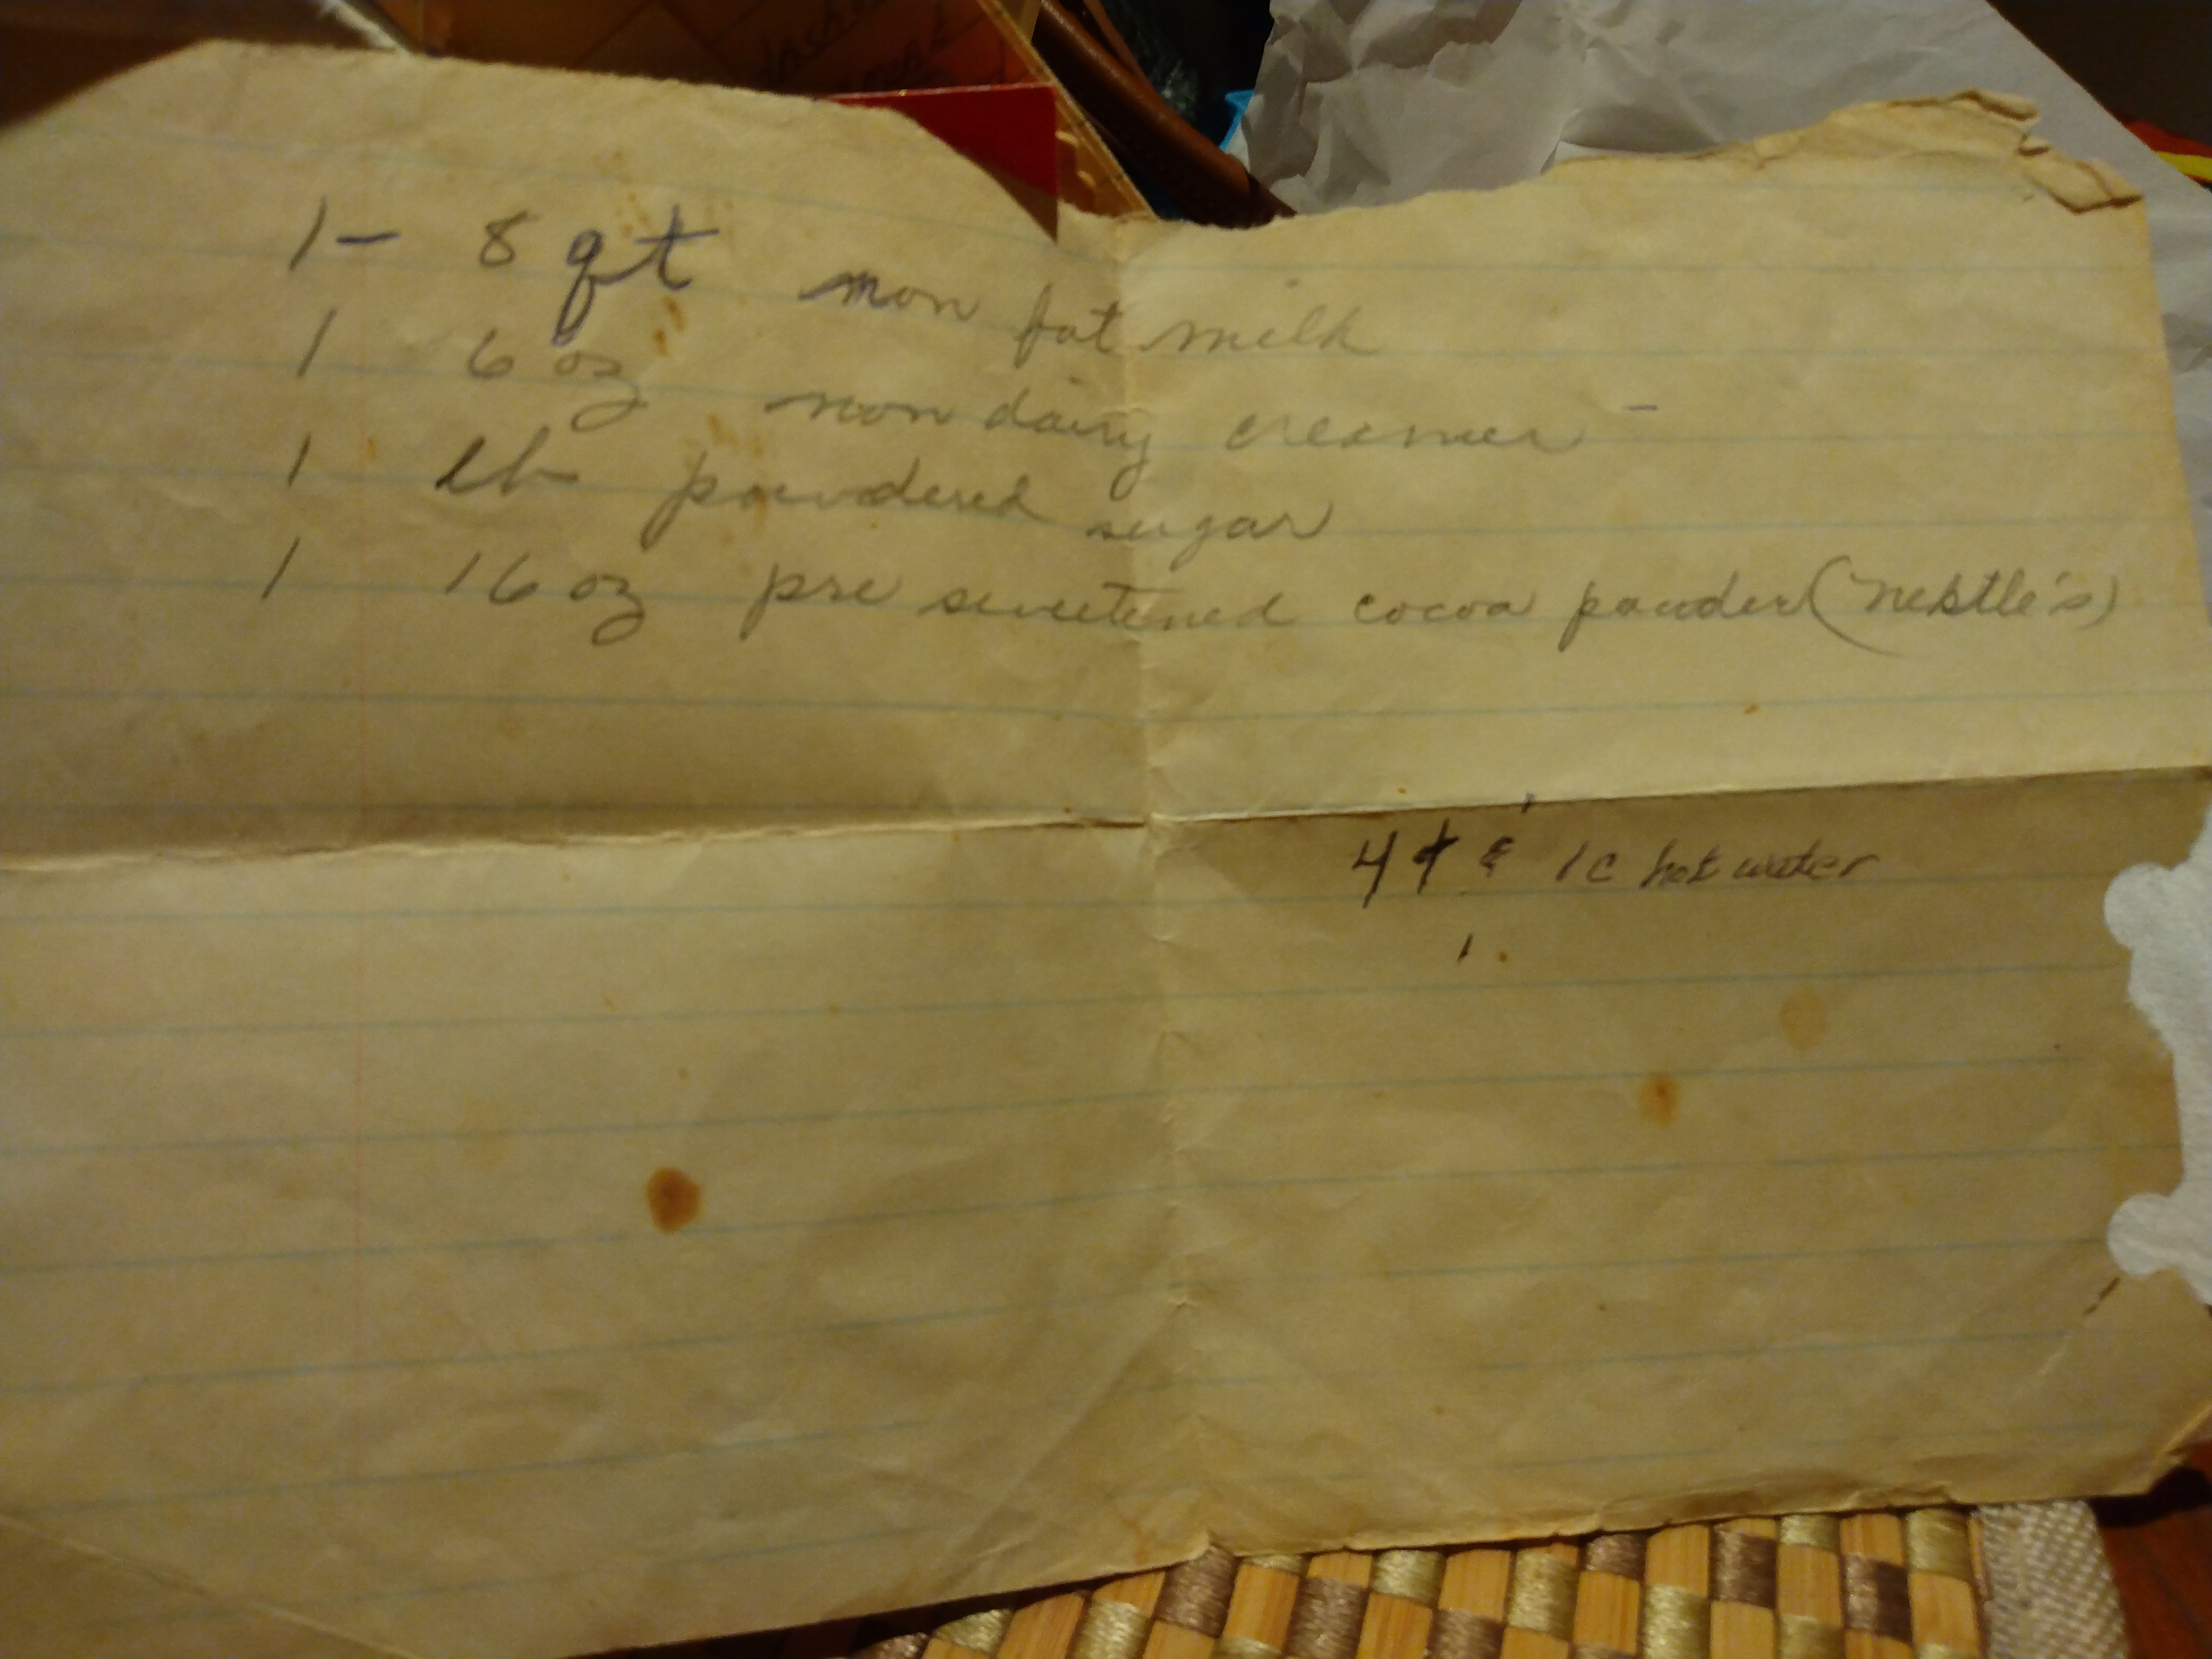 1- 8 qt non fat milk
1 6 oz non dairy creamer -
1 lb powdered sugar
1 16 oz pre sweetened cocoa powder (Nestle's)
4 t & 1c hot water